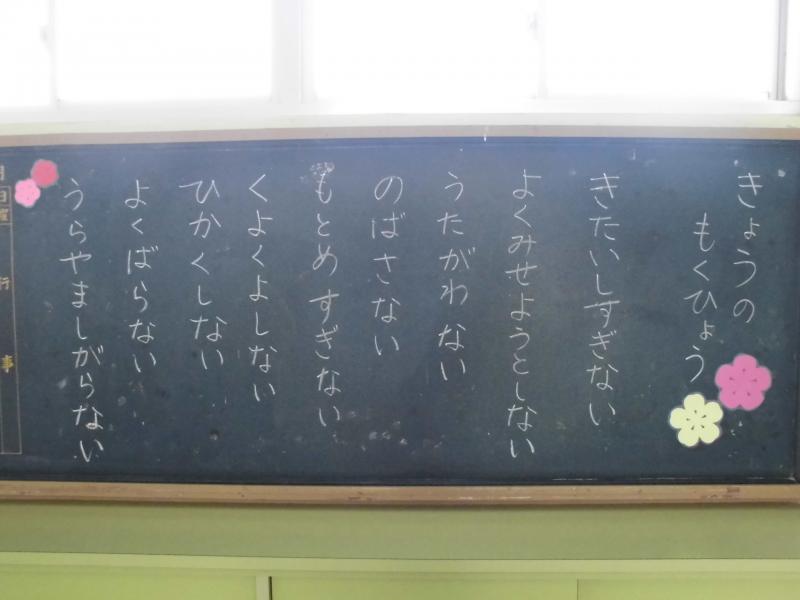 きょうの
もくひょう
きたいしすぎない
よくみせようとしない
うたがわない
のばさない
もとめすぎない
くよくよしない
ひかくしない
よくばらない
うらやましがらない
月
日
曜
行
事